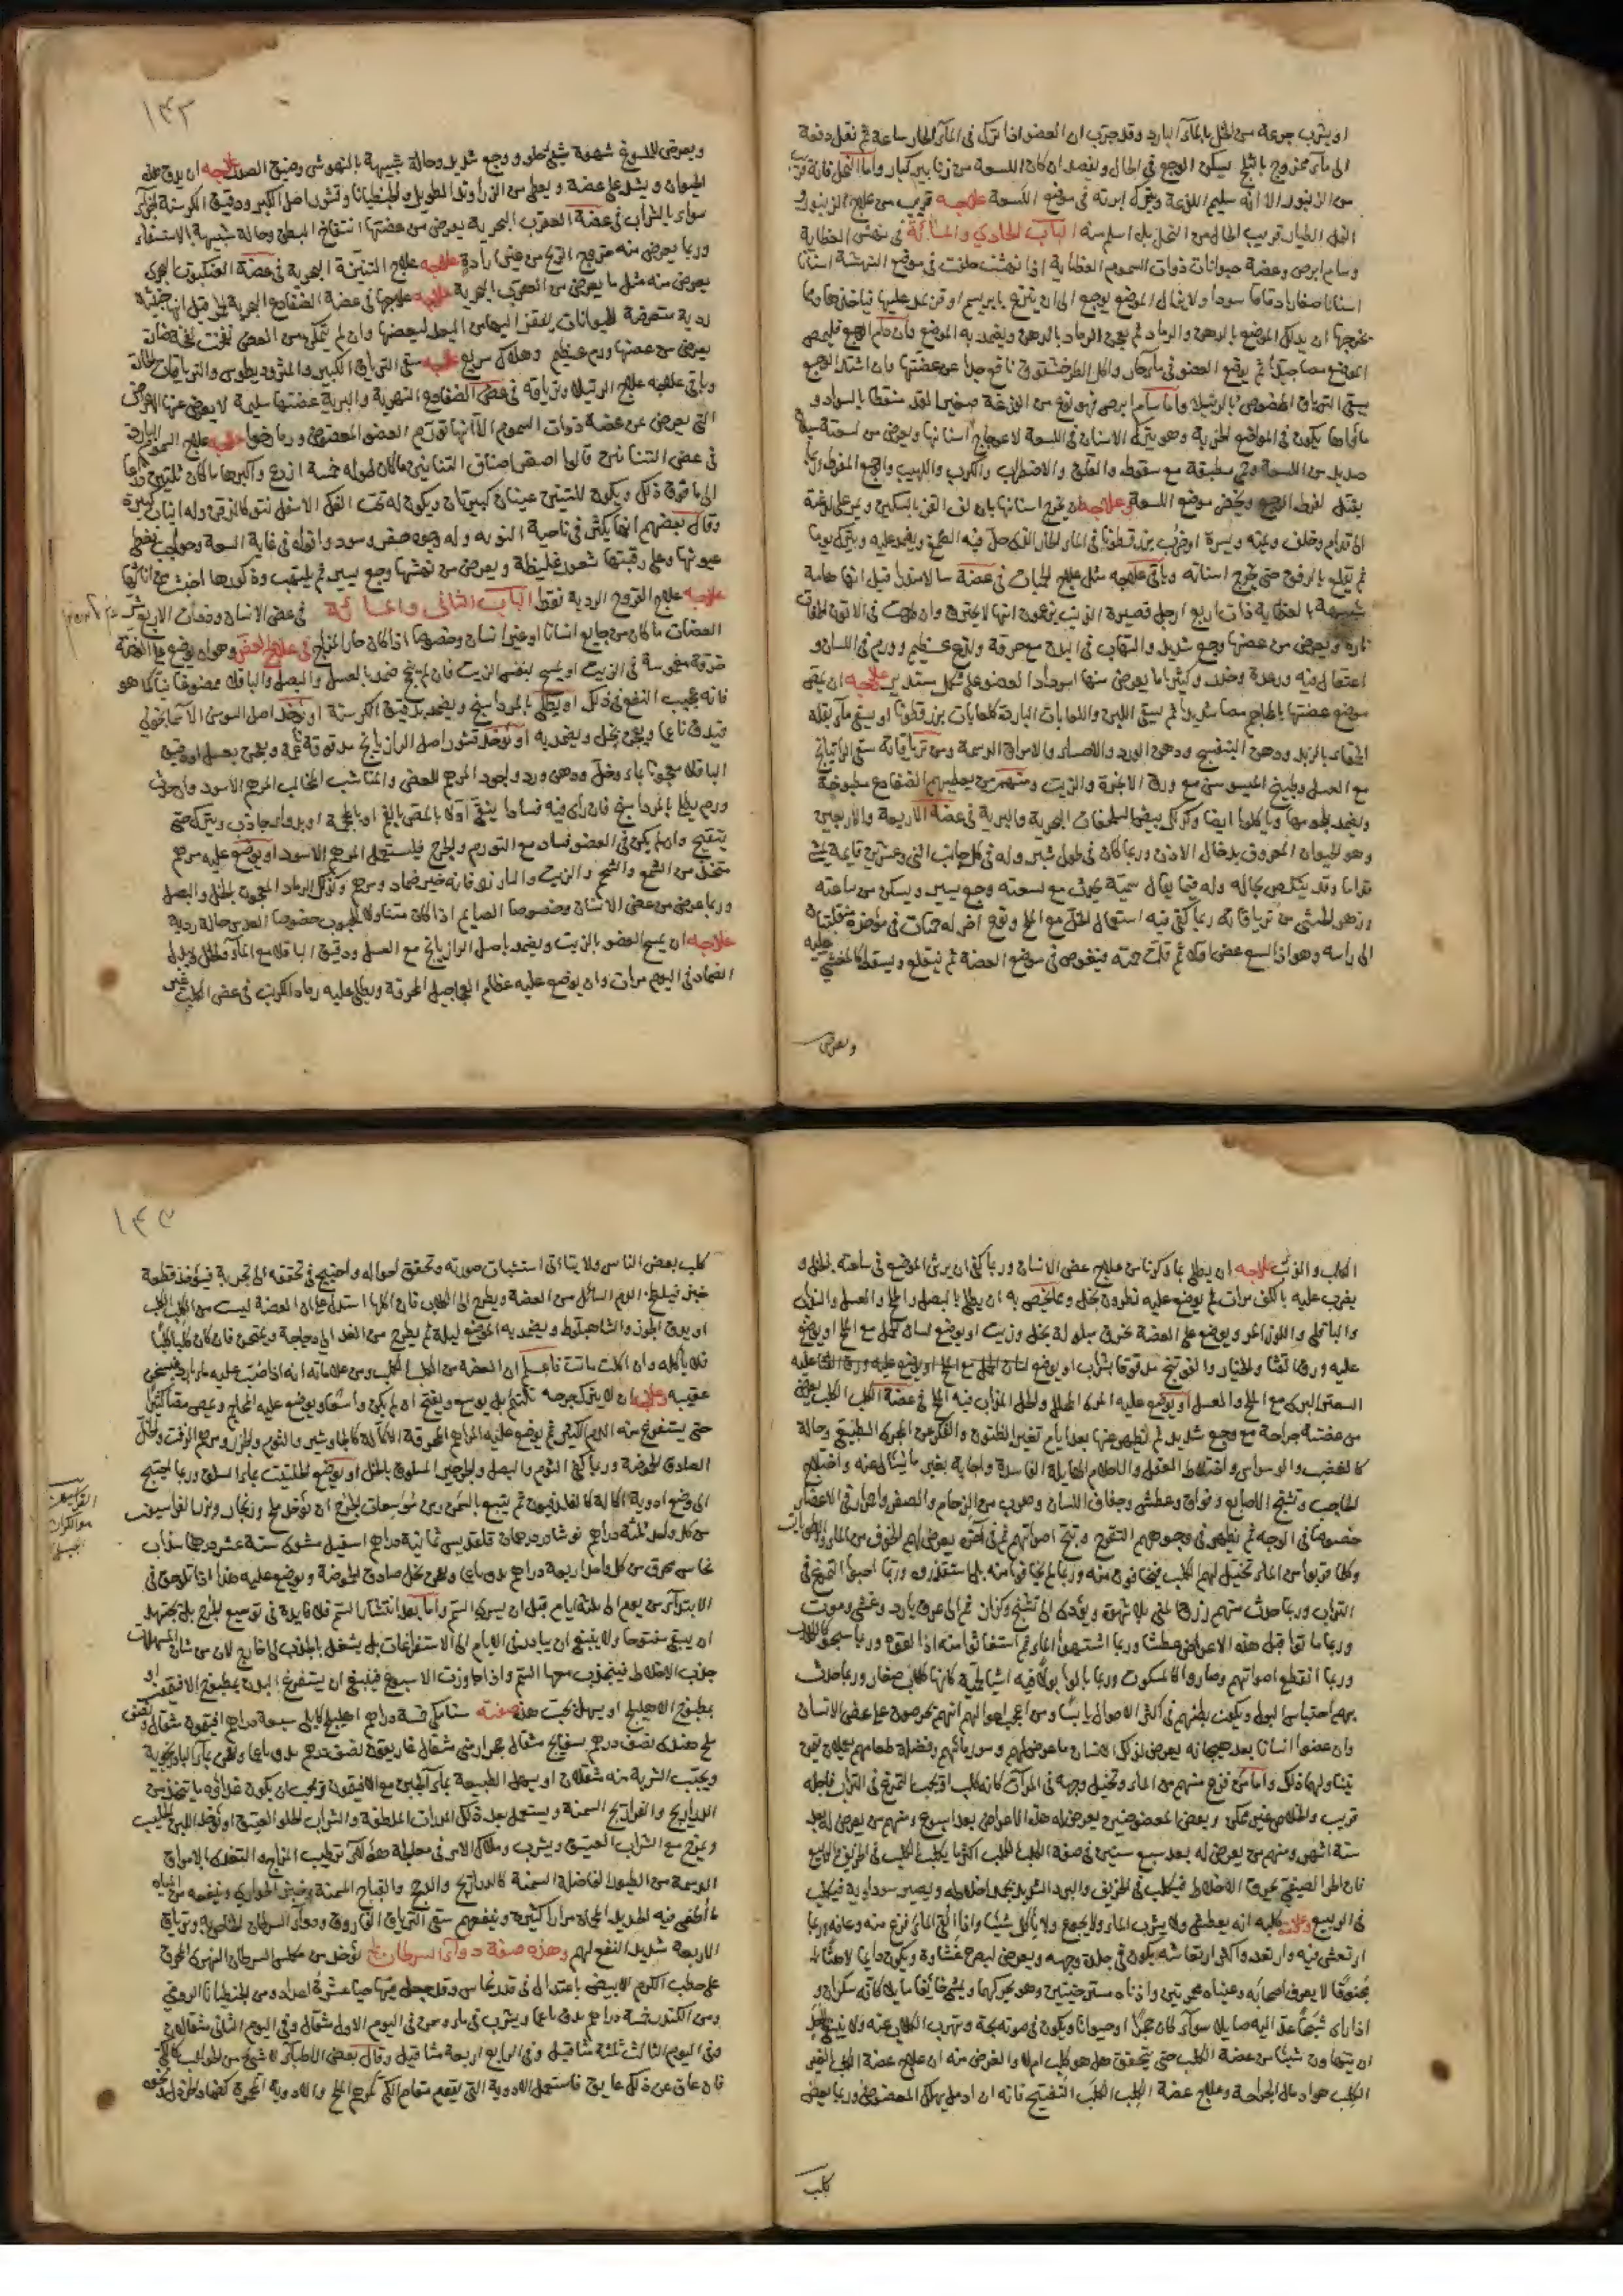 او يشرب جرعة من الخل بالماء البارد وقد جرب ان العضو اذا ترك فى الماء الحار ساعة ثم نقل دفعة
الى ماء ممزوج بالثلج سكن الوجع فى الحال ويفصد ان كان اللسعة من زنابير كبار واما النحل فانه
من الزنبور الا انه سليم اللدغة ويترك ابرته فى موضع اللسعة علاجه قريب من علاج الزنبور
النمل الطيار قريب الحال من النحل بل اسلم منه الباب الحادي والمائة فى نهش العظاية
وسام ابرص وعضة حيوانات ذوات السموم العظاية اذا نهشت خلفت فى موضع النهشة
اسنانا صغارا دقاقا سوداء ولا يزال الموضع يوجع الى ان ينزع بابريسم او قز يمد عليها
يخرجها ان يدلك الموضع بالدهن والرماد ثم يعجن الرماد بالدهن ويضمد به الموضع فان دام الوجع فليمص
الموضع مصا جيدا ثم يوضع العضو فى ماء حار واكل الطرخشقوق نافع جدا عن عضتها وان اشتد الوجع
يسقى الترياق المخصوص بالرتيلا واما سام ابرص فهو نوع من الوزغة صغير القد منقط بالسواد و
مأواها يكون فى المواضع الخربة وهو يترك الاسنان فى اللسعة لاعوجاج اسنانها ويعرض من لسعته
صديد من اللسعة وحمى مطبقة مع سقوط والقلق والاضطراب والكرب واللهيب والوجع المفرط
يقتل لفرط الوجع ويخضر موضع اللسعة علاجه ان يخرج اسنانها بان يلف القز بالسكين ويمر على اللدغة
الى قدام وخلف ويمنة ويسرة او يضرب بزر قطونا فى الماء الحار الذى حل فيه الصمغ ويضع عليه ويترك يوما
ثم يقلع بالرفق حتى يخرج اسنانه وباقى علاجه مثل علاج الحيات فى عضة سالامندرا قيل انها عامة
شبيهة بالعظاية ذات اربع ارجل قصيرة الذنب يزعمون انها لا يحترق وان القيت فى الاتون
ناره ويعرض من عضها وجع شديد والتهاب فى البدن مع حرقة ولذع عظيم وورم فى اللسان و
اعتقال فيه ورعدة وخدر وكثيرا ما يعرض منها اسوداد العضو على شكل مستدير علاجه ان يمص
موضع عضتها بالمحاجم مصا شديدا ثم يسقى اللبن واللعابات الباردة كلعابات بزر قطونا او يسقى ماء بقلة
الحمقاء بالزبد ودهن البنفسج ودهن الورد والاحساء والامراق الدسمة ومن ترياقاته سقى الراتيانج
مع العسل وطبيخ السوسن مع ورق الانجرة والزيت ومنهم من يطعمهم الضفادع مطبوخة
ويضمد بلحومها وياكلوا ايضا وكذلك بيض السلحفات البحرية والبرية فى عضة الاربعة والاربعين
وهو الحيوان المعروف بدخال الاذن وربما كان فى طول شبر وله فى كل جانب اثنى وعشرين قائمة يمشى
قداما وقد ينكص بحاله وله فيما يقال سمية يحدث مع لسعته وجع يسير ويسكن من ساعته
وزهر الخنثى من ترياقاته ربما كفى فيه استعمال الخل مع الملح ونوع اخر له حمات فى مؤخره
الى راسه وهو اذا لسع عض اولا ثم قلب حمته فيغوص فى موضع العضة ثم ينقلع ويسقط
ويعرض
١٤٢
ويعرض للملدوغ شهوة شئ حلو ووجع شديد وحالة شبيهة بالنهوش وضيق الصدر علاجه ان يدق هذا
الحيوان ويشد على عضه ويعطى من الزراوند الطويل والجنطيانا وقشور اصل الكبر ودقيق الكرسنة
سواء بالشراب فى عضة العقرب البحرية يعرض من عضتها انتفاخ البطن وحالة شبيهة بالاستسقاء
وربما يعرض منه خروج الريح من غير ارادة علاجه علاج التنينة البحرية فى عضة العنكبوت البحرى
يعرض منه مثل ما يعرض من العقرب البحرية علاجه علاجها فى عضة الضفادع البحرية الحمر قيل انها خبيثة
ردية متعرضة للحيوانات يقفز اليها من البعد ليعضها وان لم يتمكن من العض نفخت نفخة ضارة
يعرض من عضها ورم عظيم وهلاك سريع علاجه سقى الترياق الكبير والمثروديطوس والترياقات
وباقى علاجه علاج الرتيلا وترياقه فى عض الضفادع النهرية والبرية عضتها سليمة لا يعرض عنها الاعراض
التى يعرض عن عضة ذوات السموم الا انها تورم العضو المعضوض وربما رخوا علاجه علاج السموم الباردة
فى عض التنانين قالوا اصغر اصناف التنانين ما كان طوله خمسة اذرع واكبرها ما كان ثلثين ذراعا
الى ما فوق ذلك ويكون للتنين عينان كبيرتان ويكون له تحت الفك الاسفل نتو كالذقن وله انياب كبيرة
وقال بعضهم انها يكثر فى ناحية النوبه وله وجوه صفر وسود وافواه فى غاية السعة وحواجب تغطى
عيونها وعلى رقبتها شعور غليظة ويعرض من نهشها وجع يسير ثم يلتهب وذكورها اخبث من اناثها
علاجه علاج القروح الردية فقط الباب الثانى والمائة فى عض الانسان وذوات الاربع
العضات ما كان من جايع انسانا او غير انسان وخصوصا اذا كان حار المزاج فى علاج العض وهو ان يوضع على العضة
خرقة مغموسة فى الزيت او يمسح بنفس الزيت فان لم ينجح ضمد بالعسل والبصل والباقلا ممضوغا نيا كما هو
فانه عجيب النفع فى ذلك او يطلى بالمرداسنج ويضمد بدقيق الكرسنة او يؤخذ اصل السوسن الاسمانجونى
فيدق ناعما ويعجن بخل ويضمد به او يؤخذ قشور اصل الرازيانج مدقوقة ويعجن بعسل او دقيق
الباقلا معجونا بماء وخل ودهن ورد واجود المراهم للعض والمناشب المخالب المرهم الاسود وان حدث
ورم يطلى بالمرداسنج فان رأى فيه فسادا ينقى اولا بالمص بالفم او بالمحجمة او بدواء جاذب ويترك حتى
يتقيح وان لم يكن فى العضو فساد مع التورم والجرح فليستعمل المرهم الاسود او يوضع عليه مرهم
متخذ من الشمع والشحم والزيت والبارزد فانه خير ضماد ومرهم وكذلك الرماد المعجون بالخل والبصل
وربما عرض من عض الانسان وخصوصا الصايم اذا كان متناولا للحبوب خصوصا العدس حالة ردية
علاجه ان يمسح العضو بالزيت ويضمد باصل الرازيانج مع العسل ودقيق الباقلا مع الماء والخل ويبدل
الضماد فى اليوم مرات وان يوضع عليه عظام العجاجيل المحرقة ويطلى عليه رماد الكرنب فى عض الكلب غير
الكلب والذئب علاجه ان يطلى بما ذكرنا من علاج عض الانسان وربما كفى ان يرش الموضع فى ساعته بالخل و
يضرب عليه بالكف مرات ثم يوضع عليه نطرون بخل وما يخص به ان يطلى بالبصل والملح والعسل والسذاب
والباقلى واللوز المر ويوضع على العضة خرق مبلولة بخل وزيت او يوضع لسان الحمل مع الملح او يوضع
عليه ورق القثا والخيار والفوتنج مدقوقا بشراب
السعتر البرى مع الملح والعسل او يوضع عليه المرى الخل والخل المذاب فيه الملح فى عضة الكلب الكلب يعرض
من عضته جراحة مع وجع شديد ثم تظهر منها بعد ايام تغير الظنون والفكر عن المجرى الطبيعى وحالة
كالغضب والوسواس واختلاط العقل والاحلام الهايلة الفاسدة واجابة بغير ما يسأل عنه واختلاج
الحاجب وتشنج الاصابع وفواق وعطش وجفاف اللسان وهرب من الزحام والصفر واحمرار فى الاعضاء
خصوصا فى الوجه ثم تظهر فى وجوههم التقرح وتبح اصواتهم ثم فى آخره يعرض لهم الخوف من الماء والرطوبات
وكلما قربوا من الماء تخيل لهم الكلب فيخافون منه وربما لم يخافوا منه بل استقذروه وربما احبوا التمرغ فى
التراب وربما حدث منهم زرق المنى بلا شهوة ويؤدى الى تشنج وكزاز ثم الى عرق بارد وغشى وموت
وربما ماتوا قبل هذه الاعراض عطشا وربما اشتهوا الماء ثم استغاثوا منه اذا لقوه وربما نبحوا كالكلاب
وربما انقطع اصواتهم وصاروا كالمسكوت وربما بالوا بولا فيه اشيا لحمية كانها كلاب صغار وربما حدث
بهم احتباس البول ويكون بطنهم فى اكثر الاحوال يابسا ومن اعجب احوالهم انهم يحرصون على عض الانسان
وان عضوا انسانا بعد هيجانه يعرض لذلك الانسان ما عرض لهم وسور مائهم وفضلة طعامهم يعملان بمن
يتناولها ذلك واما من فزع منهم من الماء وتخيل وجهه فى المرآة كانه كلب او يحب التمرغ فى التراب فاجله
قريب والخلاص غير ممكن وبعض المعضوضين يعرض له هذه الاعراض بعد اسبوع ومنهم من يعرض له بعد
ستة اشهر ومنهم من يعرض له بعد سبع سنين فى صفة الكلب الكلب اكثر ما يكلب الكلب فى الخريف والربيع
فان الحر الصيفى يحرق الاخلاط فيكلب فى الخريف والبرد الشديد يجمد اخلاطه ويصير سوداوية فيكلب
فى الربيع وعلامة كلبه انه يعطش ولا يشرب الماء ويجوع ولا ياكل شيئا واذا رأى الماء فزع منه وعافه وربما
ارتعش فيه وارتعد واكثر ارتعاشه يكون فى جلدة وجهه ويعرض لبصره غشاوة ويكون دايما لاهثا
مجنونا لا يعرف اصحابه وعيناه محمرتين واذناه مسترخيتين وهو يحركهما ويمشى خائفا مايلا كانه سكران و
اذا رأى شبحا عدا اليه صايلا سواء كان حجرا او حيوانا ويكون فى صوته بحة وتهرب الكلاب عنه ولا ينبغى
ان يتهاون شيئا من عضة الكلب حتى يتحقق هل هو كلب ام لا والغرض منه ان علاج عضة الكلب الغير
الكلب هو ادمال الجراحة وعلاج عضة الكلب الكلب التفتيح فانه ان ادمل يهلك المعضوض وربما يعض
كلب
١٤٣
كلب بعض الناس ولا يتأتى استثبات صورته وتحقق احواله واحتيج فى تحققه الى تجربة فيؤخذ قطعة
خبز فيلطخ الدم السائل من العضة ويطرح الى الكلاب فان اكلها استدل على ان العضة ليست من الكلب الكلب
او يدق الجوز والشاهبلوط ويضمد به الموضع ليلة ثم يطرح من الغد الى دجاجة ويمتحن فان كان كلبا كلبا
فلا ياكله وان اكلت ماتت فاعلم ان العضة من الكلب الكلب ومن علاماته انه اذا صب عليه ماء بارد يسخن
عقيبه وعلاجه ان لا يترك جرحه تلتئم بل يوسع ويفتح ان لم يكن واسعا ويوضع عليه المحاجم ويمص مصا كثيرا
حتى يستفرغ منه الدم الكثير ثم يوضع عليه المراهم المحرقة الاكالة كالجاوشير والثوم والخردل ومرهم الزفت والخل
الصادق الحموضة وربما كفى الثوم والبصل والجرجير المسلوق بالخل او يوضع الحلتيت بماء السلق وربما احتيج
الى وضع ادوية اكالة كالفلدفيون ثم يتبع بالسمن ومن موسعات الجرح ان يؤخذ ملح وزنجار وبزر الفراسيون
من كل واحد ثلثة دراهم نوشادر درهمان قلقديس ثمانية دراهم اسقيل مشوى ستة عشر درهما سذاب
نحاس محرق من كل واحد اربعة دراهم يدق ناعما ويعجن بخل صادق الحموضة ويوضع عليه هذا اذا تلاحق فى
الابتداء من يوم الى ثلثة ايام قبل ان يسرى السم واما بعد انتشار السم فلا فايدة فى توسيع الجرح بل يجتهد
ان يبقى مفتوحا ولا ينبغى ان يبادر فى الايام الى الاستفراغات بل يشغل بالجذب الى خارج لان من شان المسهلات
جذب الاخلاط فينجذب معها السم واذا جاوزت الاسبوع فينبغى ان يستفرغ ابدانهم بمطبوخ الافتيمون او
بمطبوخ الاهليلج او يسهل بحب هذه صفته سنا مكى خمسة دراهم اهليلج كابلى سبعة دراهم افتيمون مثقال ونصف
ملح هندى نصف درهم بسفايج مثقال حجر ارمنى مثقال غاريقون نصف درهم يدق ناعما ويعجن بماء البادرنجبوية
ويحبب الشربة منه مثقالان او يسهل الطبيعة بماء الجبن مع الافتيمون ويجب ان يكون غذائه ما يتخذ من
الدراريج والفراريج المسمنة ويستعمل بعد ذلك المدرات الملطفة والشراب الحلو العتيق او يؤخذ اللبن الحليب
ويمزج مع الشراب العتيق ويشرب وملاك الامر فى معالجة هؤلاء ترطيب المزاج والتغذى بالامراق
الدسمة من الطيور الفاضلة السمنة كالدراريج والدجج والقباج المسمنة وخبز الحوارى وينفعهم من المياه
ما طفى فيه الحديد المحماة مرارا كثيرة وينفعهم سقى الترياق الفاروق ودواء السرطان الخاص به وترياق
الاربعة شديد النفع لهم وهذه صفة دواء السرطان يؤخذ من مكلس السرطان النهرى المحرق
على حطب الكرم الابيض باعتدال فى قدر نحاس وقد جعل فيها حيا عشرة اعداد ومن الجنطيانا الرومى
ومن الكندر خمسة دراهم يدق ناعما ويشرب فى ماء وعسل فى اليوم الاول مثقال وفى اليوم الثانى مثقالان
وفى اليوم الثالث ثلثة مثاقيل وفى الرابع اربعة مثاقيل وقال بعض الاطباء لا شئ من الجواذب كالكى
فان عاق عن ذلك عايق فاستعمل الادوية التى يقوم مقام الكى كمرهم الملح والادوية المحمرة كضماد الخردل ونحوه